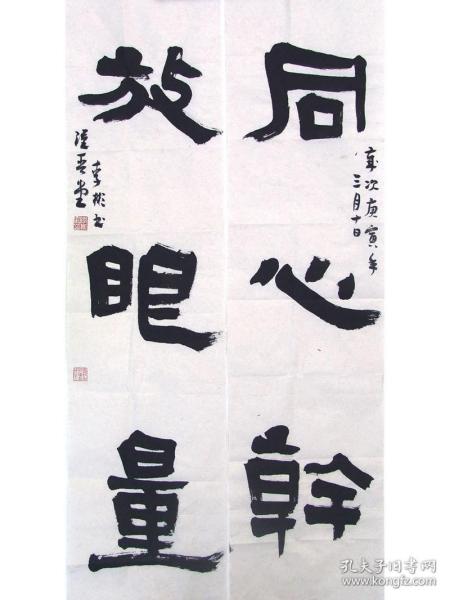 同心幹
歲次庚寅年
三月十日
放眼量
李彬书
孔夫子旧书网
www.kongfz.com